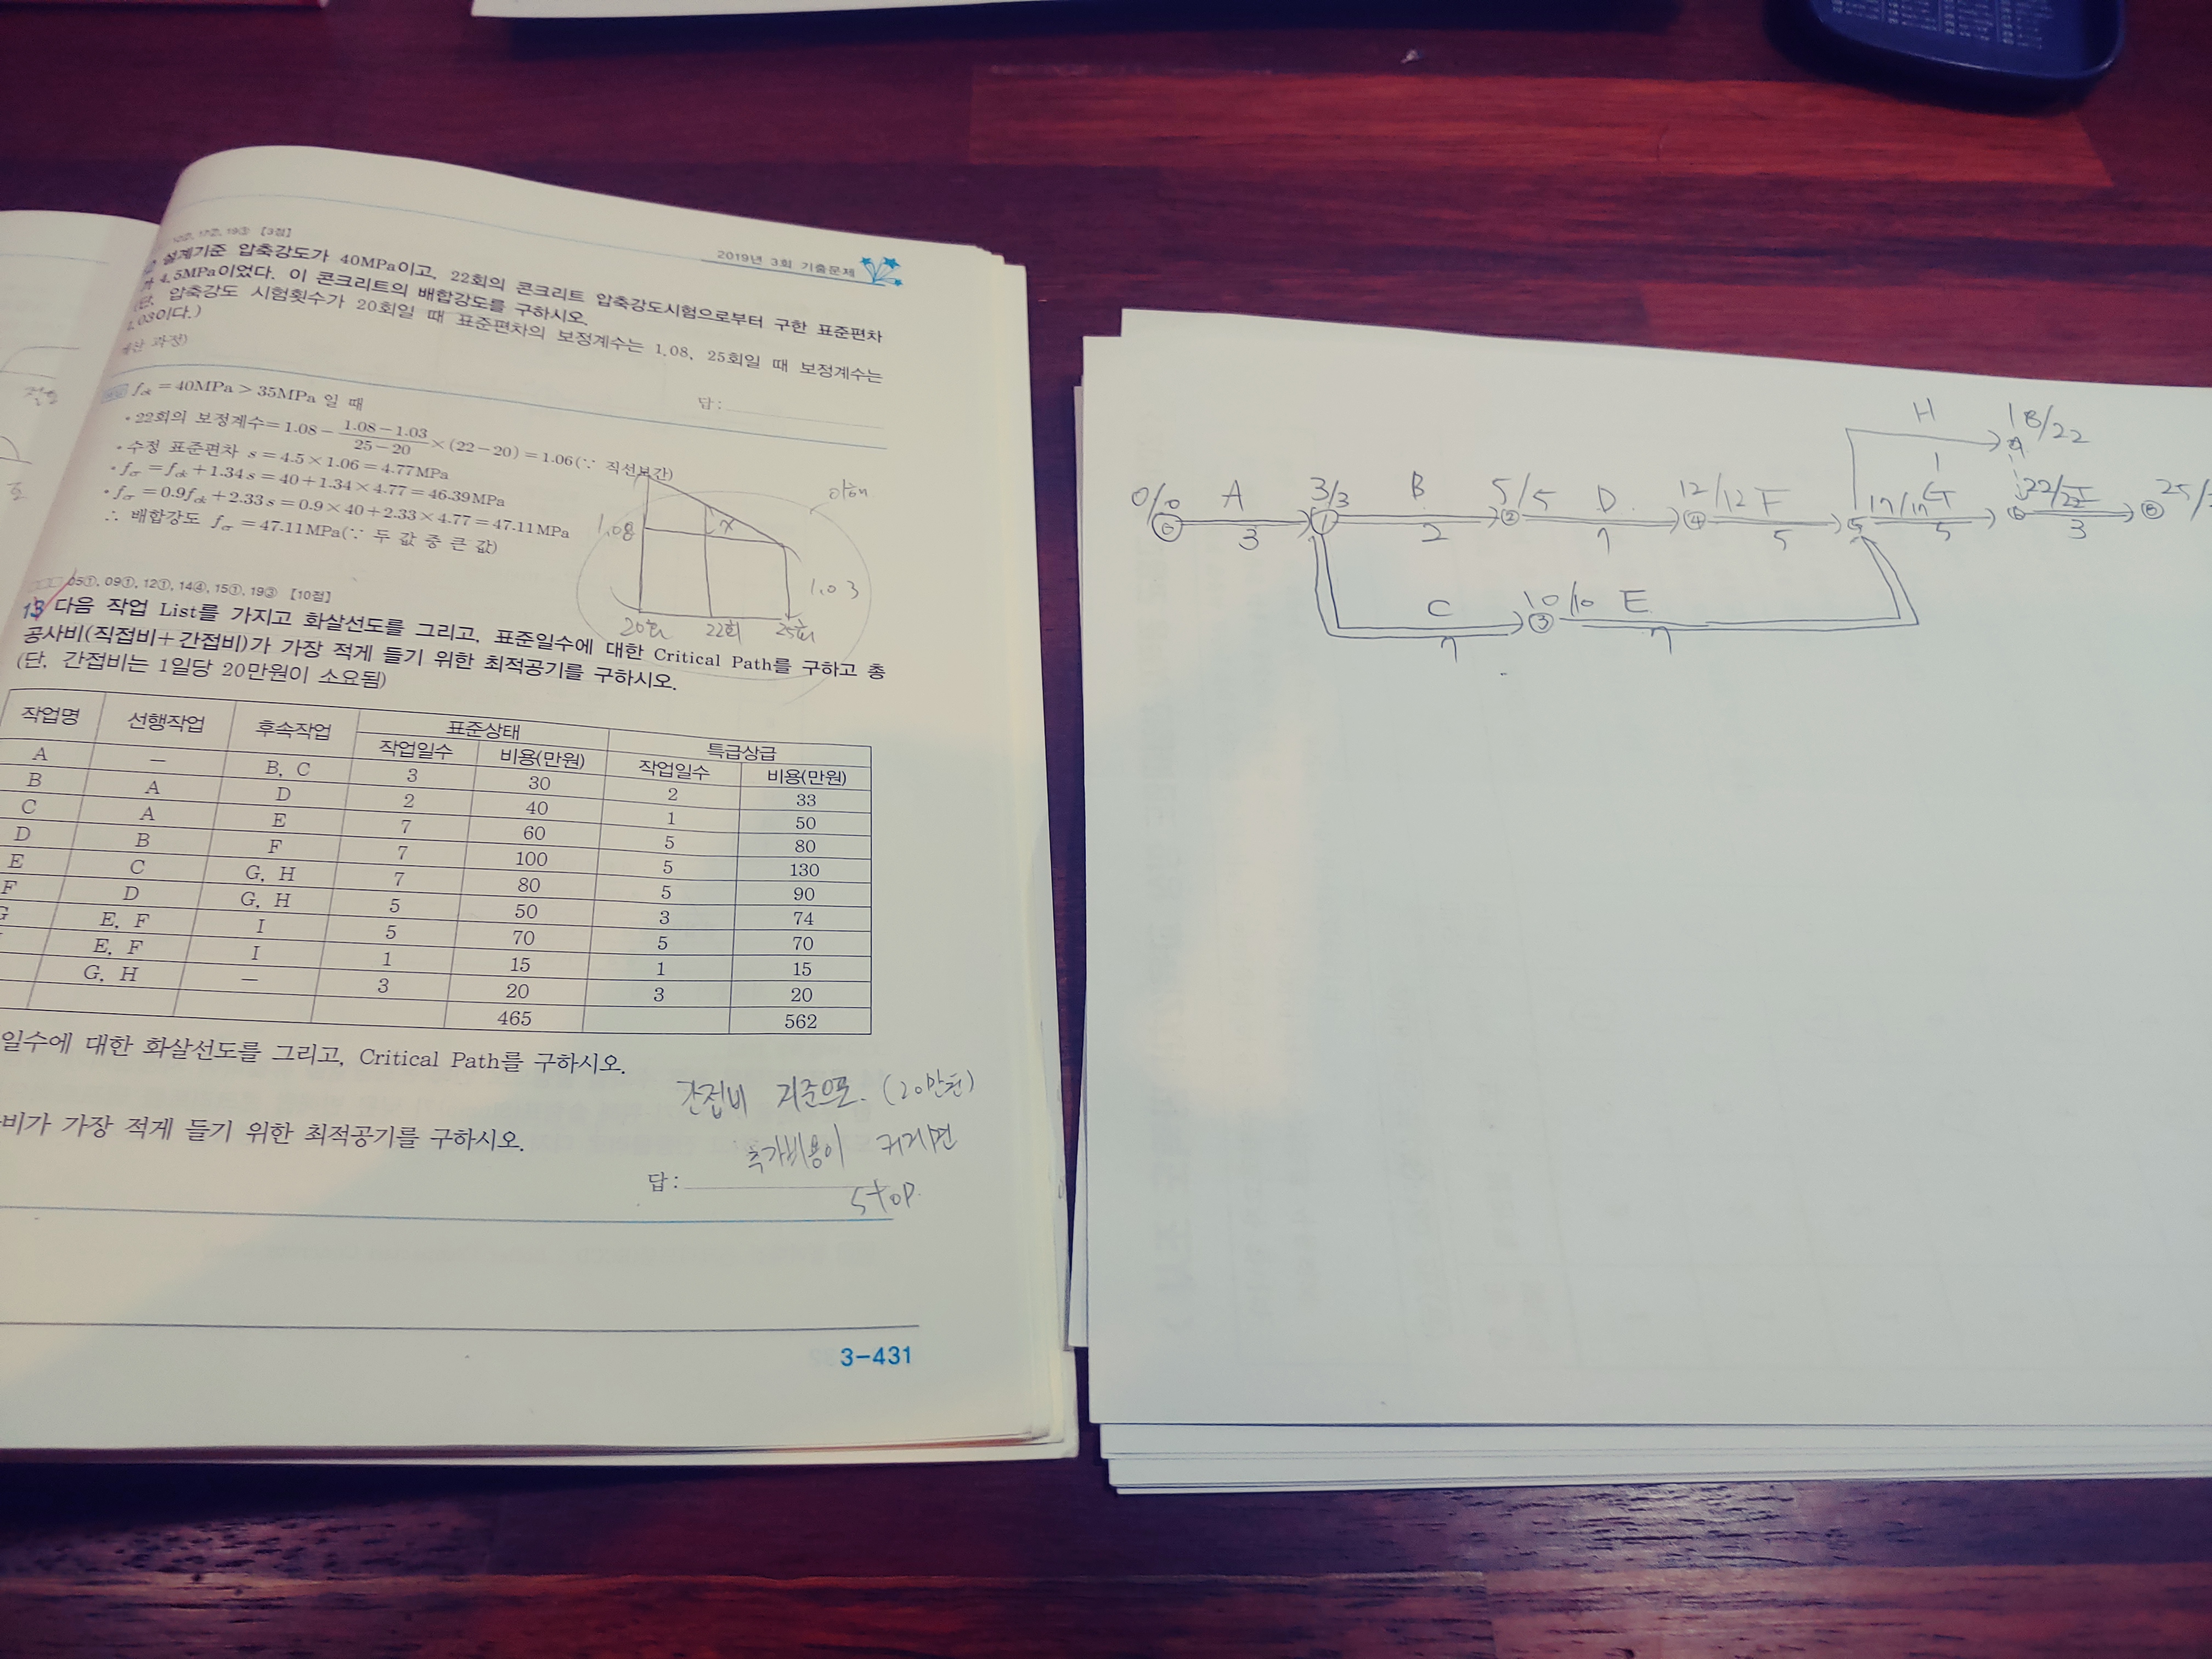 2019년 3회 기출문제
17②, 19③ 【3점】
설계기준 압축강도가 40MPa이고, 22회의 콘크리트 압축강도시험으로부터 구한 표준편차
가 4.5MPa이었다. 이 콘크리트의 배합강도를 구하시오.
(단, 압축강도 시험횟수가 20회일 때 표준편차의 보정계수는 1.08, 25회일 때 보정계수는
1.03이다.)
계산 과정)
답:
f_ck = 40MPa > 35MPa 일 때
• 22회의 보정계수 = 1.08 − (1.08−1.03)/(25−20) × (22−20) = 1.06(∵ 직선보간)
• 수정 표준편차 s = 4.5×1.06 = 4.77MPa
• f_cr = f_ck + 1.34s = 40 + 1.34×4.77 = 46.39MPa
• f_cr = 0.9f_ck + 2.33s = 0.9×40 + 2.33×4.77 = 47.11MPa
∴ 배합강도 f_cr = 47.11MPa(∵ 두 값 중 큰 값)
1.08
x
1.03
20회 22회 25회
05①, 09①, 12①, 14④, 15①, 19③ 【10점】
13 다음 작업 List를 가지고 화살선도를 그리고, 표준일수에 대한 Critical Path를 구하고 총
공사비(직접비+간접비)가 가장 적게 들기 위한 최적공기를 구하시오.
(단, 간접비는 1일당 20만원이 소요됨)
작업명 선행작업 후속작업 표준상태 특급상급
작업일수 비용(만원) 작업일수 비용(만원)
A — B, C 3 30 2 33
B A D 2 40 1 50
C A E 7 60 5 80
D B F 7 100 5 130
E C G, H 7 80 5 90
F D G, H 5 50 3 74
G E, F I 5 70 5 70
E, F I 1 15 1 15
G, H — 3 20 3 20
465 562
일수에 대한 화살선도를 그리고, Critical Path를 구하시오.
비가 가장 적게 들기 위한 최적공기를 구하시오.
답:
간접비 기준으로. (20만원)
추가비용이 커지면
stop.
3-431
H 18/22
1
0/0 A 3/3 B 5/5 D 12/12 F 17/17 G 22/22 I 25/
0 3 1 2 2 7 4 5 5 5 6 3 8
C 10/10 E
7 3 7